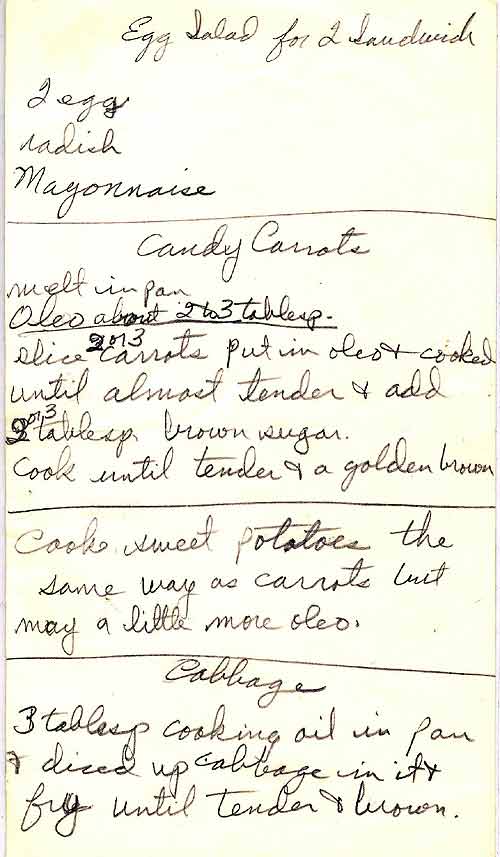 Egg Salad for 2 Sandwich
2 egg
radish
Mayonnaise
Candy Carrots
melt in pan
Oleo about 2 to 3 tablesp.
slice 2 or 3 carrots put in oleo & cooked
until almost tender & add
2 or 3 tablesp. brown sugar.
Cook until tender & a golden brown
Cook sweet potatoes the
same way as carrots but
may a little more oleo.
Cabbage
3 tablesp cooking oil in pan
& diced up cabbage in it &
fry until tender & brown.